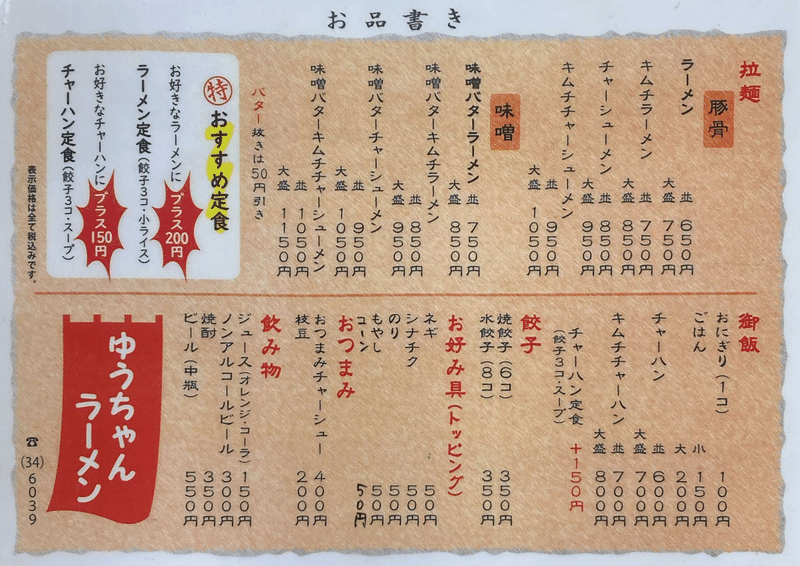 お品書き
拉麺
豚骨
ラーメン 並 650円
大盛 750円
キムチラーメン 並 750円
大盛 850円
チャーシューメン 並 850円
大盛 950円
キムチチャーシューメン 並 950円
大盛 1050円
味噌
味噌バターラーメン 並 750円
大盛 850円
味噌バターキムチラーメン 並 850円
大盛 950円
味噌バターチャーシューメン 並 950円
大盛 1050円
味噌バターキムチチャーシューメン 並 1050円
大盛 1150円
バター抜きは50円引き
特 おすすめ定食
お好きなラーメンに プラス200円
ラーメン定食(餃子3コ・小ライス)
お好きなチャーハンに プラス150円
チャーハン定食(餃子3コ・スープ)
表示価格は全て税込みです。
御飯
おにぎり(1コ) 100円
ごはん 小 150円
大 200円
チャーハン 並 600円
大盛 700円
キムチチャーハン 並 700円
大盛 800円
チャーハン定食 +150円
(餃子3コ・スープ)
餃子
焼餃子(6コ) 350円
水餃子(8コ) 350円
お好み具(トッピング)
ネギ 50円
シナチク 50円
のり 50円
もやし 50円
コーン 50円
おつまみ
おつまみチャーシュー 400円
枝豆 200円
飲み物
ジュース(オレンジ・コーラ) 150円
ノンアルコールビール 300円
焼酎 350円
ビール(中瓶) 550円
ゆうちゃん
ラーメン
☎(34)6039